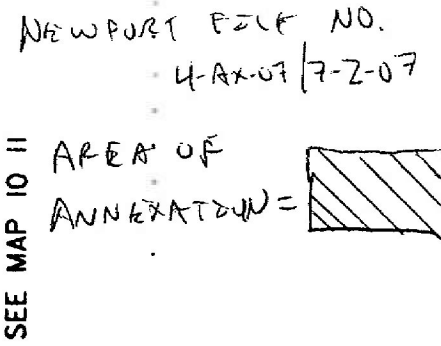 NEWPORT FILE NO.
4-AX-07/7-Z-07
AREA OF
ANNEXATION =
SEE MAP 10 11